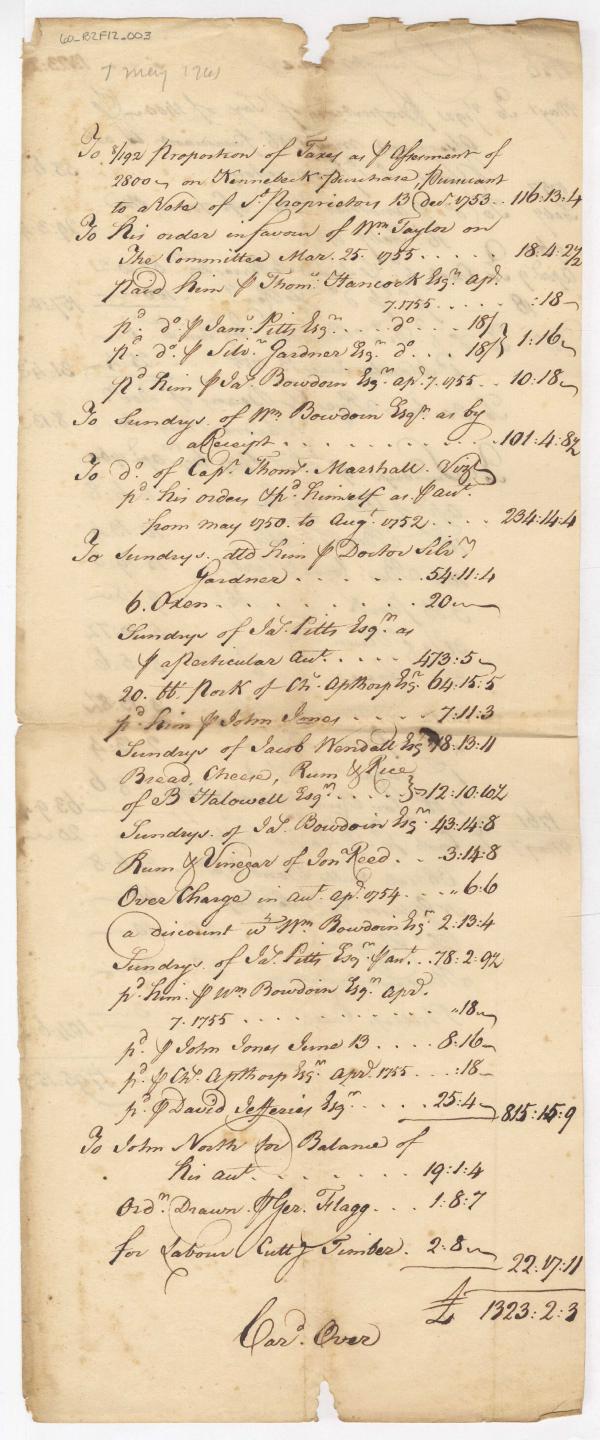 60_B2F12_003
7 May 1761
To 8/192 Proportion of Taxes as ⅌ Assesment of
2800 on Kennebeck Purchase, pursuant
to a Vote of sd. Proprietors 13 Decr. 1753 .. 116:13:4
To his order in favour of Wm Taylor on
The Committee Mar. 25. 1755 . . . . . 18:4:2½
paid him ⅌ Thoms. Hancock Esqr. apr.
7. 1755 . . . . . :18
pd. do. ⅌ Jams. Pitts Esqr. . . . do. . . . 18/
pd. do. ⅌ Silvr. Gardner Esqr. do. . . . 18/ } 1:16
pd. him ⅌ Jas. Bowdoin Esqr. apr. 7. 1755 . . 10:18
To Sundrys. of Wm Bowdoin Esqr. as by
a Receipt . . . . . . . . . . . 101:4:8½
To do. of Capt. Thoms. Marshall. Vizt
pd. his orders & pd. himself as ⅌ aut.
from may 1750. to Augt. 1752 . . . . 234:14:4
To Sundrys. dld him ⅌ Doctor Silvr.
Gardner . . . . . . 54:11:4
6. Oxen . . . . . . . . . 20
Sundrys of Jas. Pitts Esqr. as
⅌ a Perticular aut. . . . . 473:5
20. bb. Pork of Chs. Apthorp Esqr. 64:15:5
pd. him ⅌ John Jones . . . . 7:11:3
Sundrys of Jacob Wendell Esqr. 18:13:11
Bread, Cheese, Rum & Rice
of B Halowell Esqr. . . . . . } 12:10:6½
Sundrys. of Jas. Bowdoin Esqr. 43:14:8
Rum & Vinegar of Jon Reed . . . 3:14:8
Over Charge in aut. apr. 1754 . . . " 6:6
a discount wth. Wm Bowdoin Esqr. 2:13:4
Sundrys. of Jas. Pitts Esqr. ⅌ aut. . 78:2:9½
pd. him ⅌ Wm Bowdoin Esqr. Apr.
7. 1755 . . . . . . . . . . "18
pd. ⅌ John Jones June 13 . . . . 8:16
pd. ⅌ Chs. Apthorp Esqr. Apr. 1755 . . . :18
pd. ⅌ David Jefferies Esqr. . . . . 25:4 815:15:9
To John North for Balance of
his aut. . . . . . . . . . 19:1:4
Ordr. Drawn ⅌ Ger. Flagg . . . 1:8:7
for Labour Cuttg Timber . 2:8 22:17:11
£ 1323:2:3
Card. Over